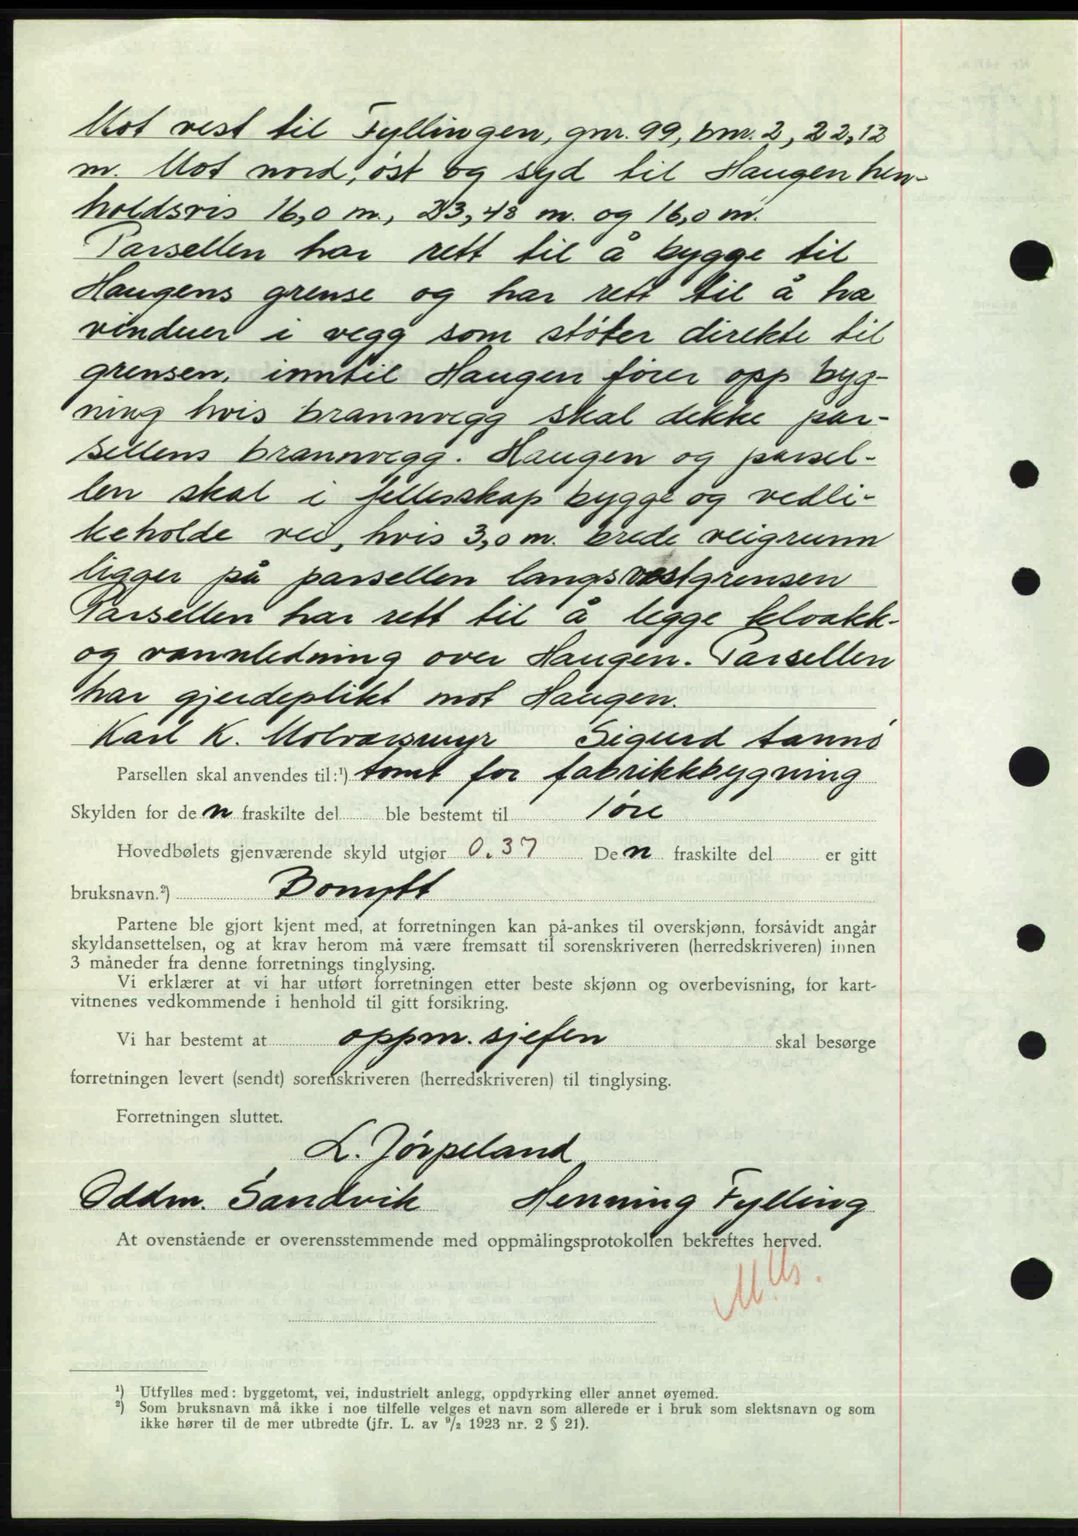 Mot vest til Fyllingen, gnr. 99, bnr. 2, 22,12
m. Mot nord, øst og syd til Haugen hen-
holdsvis 16,0 m., 23,48 m. og 16,0 m.
Parsellen har rett til å bygge til
Haugens grense og har rett til å ha
vinduer i vegg som støter direkte til
grensen, inntil Haugen fører opp byg-
ning hvis brannvegg skal dekke par-
sellens brannvegg. Haugen og parsel-
len skal i fellesskap bygge og vedli-
keholde vei, hvis 3,0 m. brede veigrunn
ligger på parsellen langs vestgrensen
Parsellen har rett til å legge kloakk-
og vannledning over Haugen. Parsellen
har gjerdeplikt mot Haugen.
Karl K. Molværsmyr Sigurd
Parsellen skal anvendes til:¹) tomt for fabrikkbygning
Skylden for den fraskilte del ble bestemt til 1 øre
Hovedbølets gjenværende skyld utgjør 0.37 Den fraskilte del er gitt
bruksnavn.²) Bonytt
Partene ble gjort kjent med, at forretningen kan på-ankes til overskjønn, forsåvidt angår
skyldansettelsen, og at krav herom må være fremsatt til sorenskriveren (herredskriveren) innen
3 måneder fra denne forretnings tinglysing.
Vi erklærer at vi har utført forretningen etter beste skjønn og overbevisning, for kart-
vitnenes vedkommende i henhold til gitt forsikring.
Vi har bestemt at oppm. sjefen skal besørge
forretningen levert (sendt) sorenskriveren (herredskriveren) til tinglysing.
Forretningen sluttet.
L. Jørpeland
Oddm. Sandvik Henning Fylling
At ovenstående er overensstemmende med oppmålingsprotokollen bekreftes herved.
¹) Utfylles med: byggetomt, vei, industrielt anlegg, oppdyrking eller annet øyemed.
²) Som bruksnavn må ikke i noe tilfelle velges et navn som allerede er i bruk som slektsnavn og som
ikke hører til de mer utbredte (jfr. L. av ⁹/₂ 1923 nr. 2 § 21).